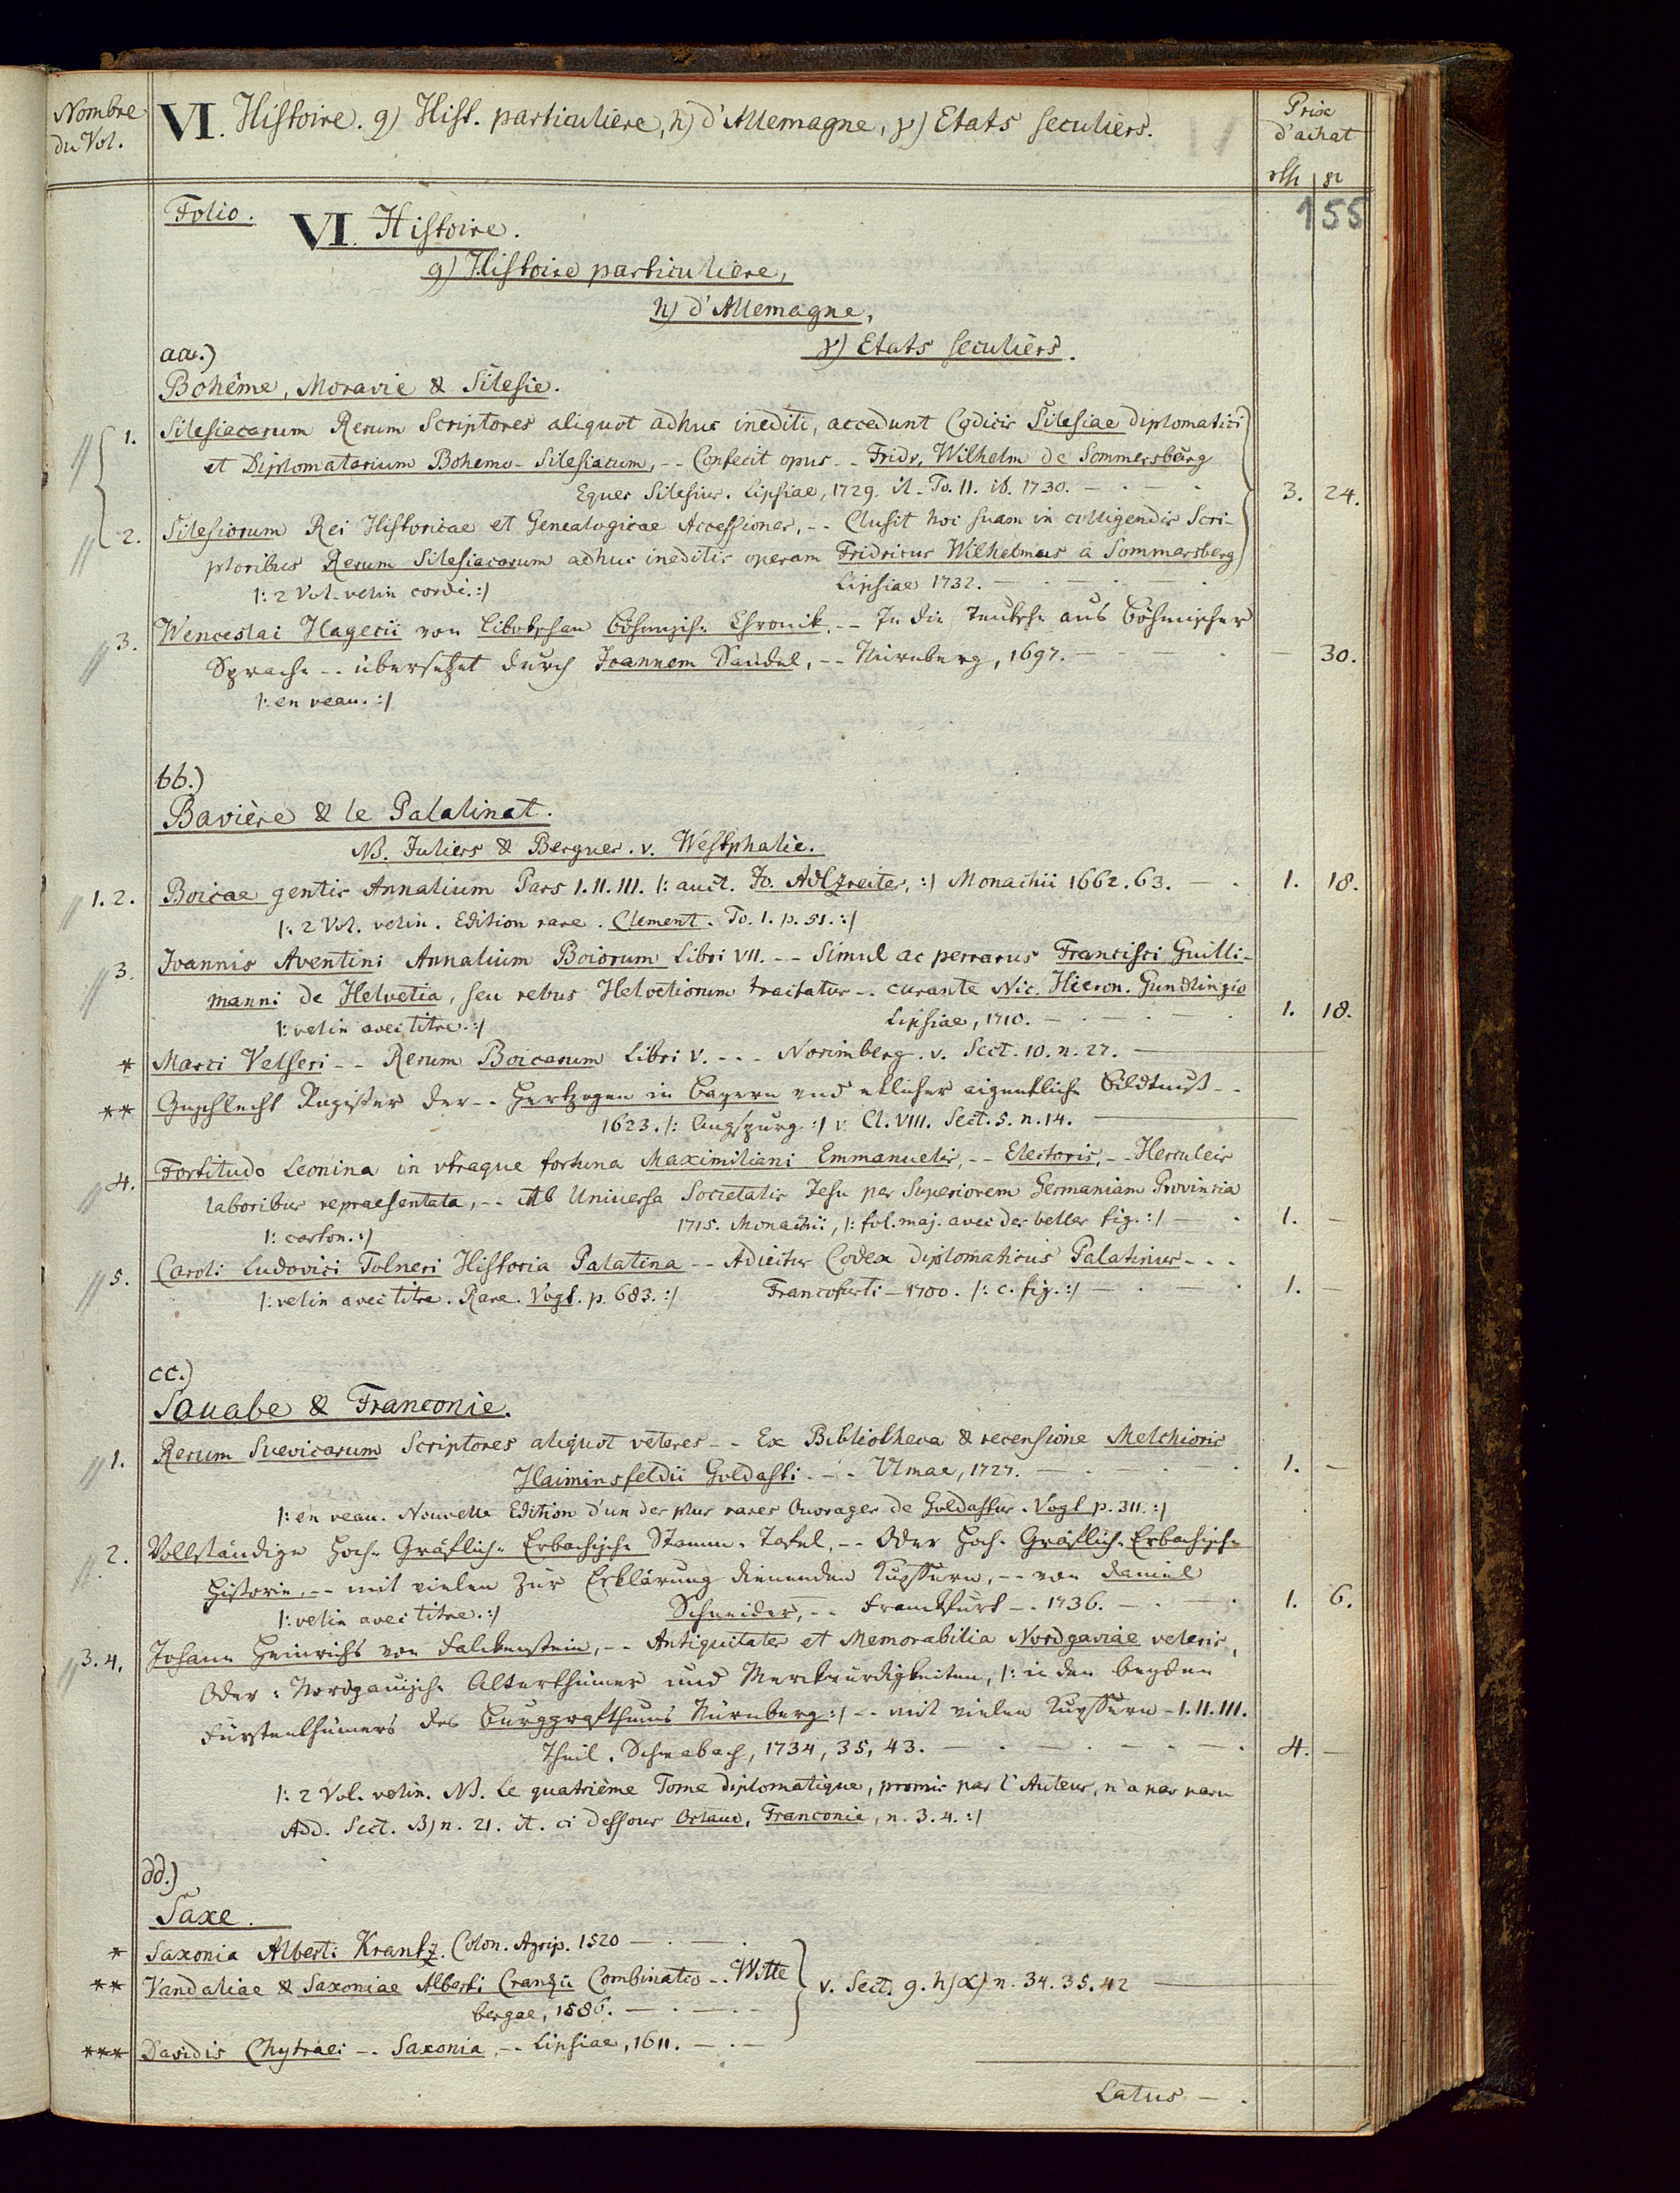 Nombre
du Vol.
VI. Histoire. g) Hist. particuliere, h) d'Allemagne, γ) Etats seculiers.
Prix
d'achat
rth gr
155
Folio.
VI. Histoire.
g) Histoire particuliere,
h) d'Allemagne,
γ) Etats seculièrs.
aa.)
Bohême, Moravie & Silesie.
1. Silesiacarum Rerum Scriptores aliquot adhuc inediti, accedunt Codicis Silesiae diplomatici
et Diplomatarium Bohemo-Silesiacum, -- Confecit opus -- Fridr. Wilhelm de Sommersburg
Eques Silesius. Lipsiae, 1729. it. To. II. ib. 1730. 3. 24.
2. Silesiorum Rei Historicae et Genealogicae Accessiones, -- Clusit hoc suam in colligendis Scri-
ptoribus Rerum Silesiacarum adhuc ineditis operam Fridricus Wilhelmus a Sommersberg
|: 2 Vol. velin cordé. :| Lipsiae 1732.
3. Wenceslai Hagecii von Libotschan Böhmische Chronik. -- In die Teutsche aus Böhmischer
Sprache -- übersetzet durch Joannem Sandel, -- Nürnberg, 1697. — 30.
|: en veau. :|
bb.)
Bavière & le Palatinat.
NB. Juliers & Bergues. v. Westphalie.
1. 2. Boicae gentis Annalium Pars I. II. III. |: auct. Jo. Adlzreiter, :| Monachii 1662. 63. — 1. 18.
|: 2 Vol. velin. Edition rare. Clement. To. 1. p. 51. :|
3. Joannis Aventini Annalium Boiorum Libri VII. -- Simul ac perrarus Francisci Guilli-
manni de Helvetia, seu rebus Helvetiorum tractatus -- curante Nic. Hieron. Gundlingio
|: velin avec titre. :| Lipsiae, 1710. 1. 18.
* Marci Velseri -- Rerum Boicarum Libri V. --- Norimberg. v. Sect. 10. n. 27.
** Geschlecht Register der -- Hertzogen in Bayern und etlicher eigentliche Bildtnuß --
1623. |: Augspurg :| v. Cl. VIII. Sect. 5. n. 14.
4. Fortitudo Leonina in utraque fortuna Maximiliani Emmanuelis, -- Electoris, -- Herculeis
laboribus repraesentata, -- Ab Universa Societatis Jesu per Superiorem Germaniam Provincia
|: carton. :| 1715. Monachii, |: fol. maj. avec des belles fig. :| — 1. —
5. Caroli Ludovici Tolneri Historia Palatina -- Adicitur Codex diplomaticus Palatinus ---
|: velin avec titre. Rare. Vogt. p. 683. :| Francofurti — 1700. |: c. fig. :| — 1. —
cc.)
Souabe & Franconie.
1. Rerum Suevicarum Scriptores aliquot veteres -- Ex Bibliotheca & recensione Melchioris
Haiminsfeldii Goldasti -- Ulmae, 1727. 1. —
|: en veau. Nouvelle Edition d'un des plus rares Ouvrages de Goldastus. Vogt p. 311. :|
2. Vollständige Hoch-Gräflich-Erbachische Stamm-Tafel, -- Oder Hoch-Gräflich-Erbachische
Historie, -- mit vielen zur Erklärung dienenden Kupffern, -- von Daniel
|: velin avec titre. :| Schneider, -- Franckfurt -- 1736. 1. 6.
3. 4. Johann Heinrichs von Falckenstein, -- Antiquitates et Memorabilia Nordgaviae veteris,
Oder: Nordgauische Alterthümer und Merckwürdigkeiten, |: in den beyden
Fürstenthümers des Burggrafthums Nürnberg :| -- mit vielen Kupffern - I. II. III.
Theil. Schwabach, 1734, 35, 43. 4. —
|: 2 Vol. velin. NB. Le quatrième Tome diplomatique, promis par l'Auteur, n'a pas paru
Add. Sect. B) n. 21. it. ci dessous Octavo, Franconie, n. 3. 4. :|
dd.)
Saxe.
* Saxonia Alberti Krantz. Colon. Agrip. 1520
** Vandaliae & Saxoniae Alberti Cranzii Combinatio -- Witte
bergae, 1586.
v. Sect. g. h) α) n. 34. 35. 42
*** Davidis Chytraei -- Saxonia, -- Lipsiae, 1611.
Latus